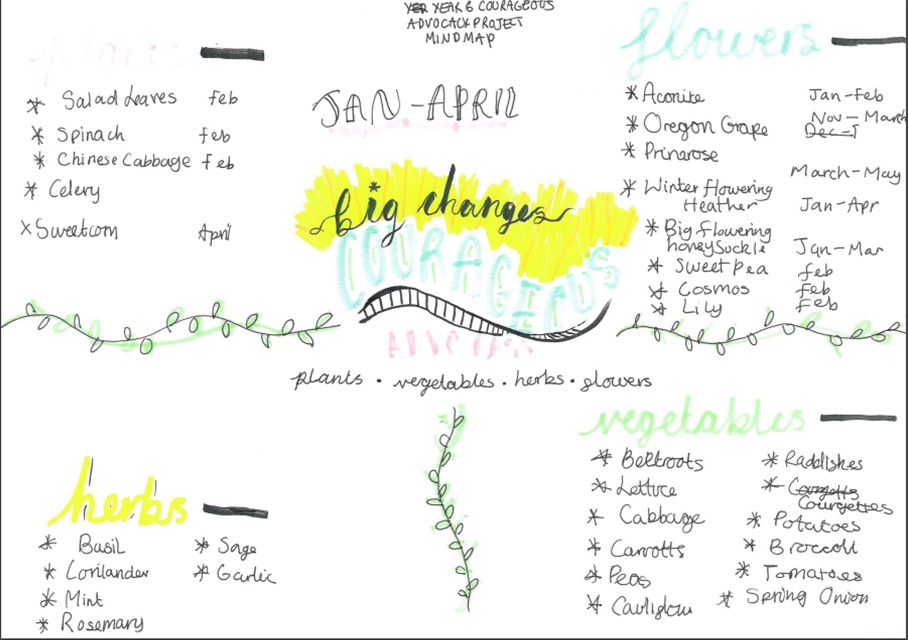 YEAR 6 COURAGEOUS
ADVOCACY PROJECT
MINDMAP
JAN-APRIL
big changes
COURAGEOUS
ADVOCACY
plants . vegetables . herbs . flowers
plants
* Salad Leaves feb
* Spinach feb
* Chinese Cabbage feb
* Celery
x Sweetcorn April
flowers
* Aconite Jan-feb
* Oregon Grape Nov-March
Dec-J
* Primrose March-May
* Winter flowering
Heather Jan-Apr
* Big flowering
honeysuckle Jan-Mar
* Sweet Pea feb
* Cosmos feb
* Lily feb
herbs
* Basil
* Corilander
* Mint
* Rosemary
* Sage
* Garlic
vegetables
* Beetroots
* Lettuce
* Cabbage
* Carrotts
* Peas
* Cauliflow
* Raddishes
* Courgetts
Courgettes
* Potatoes
* Broccoli
* Tomatoes
* Spring Onion